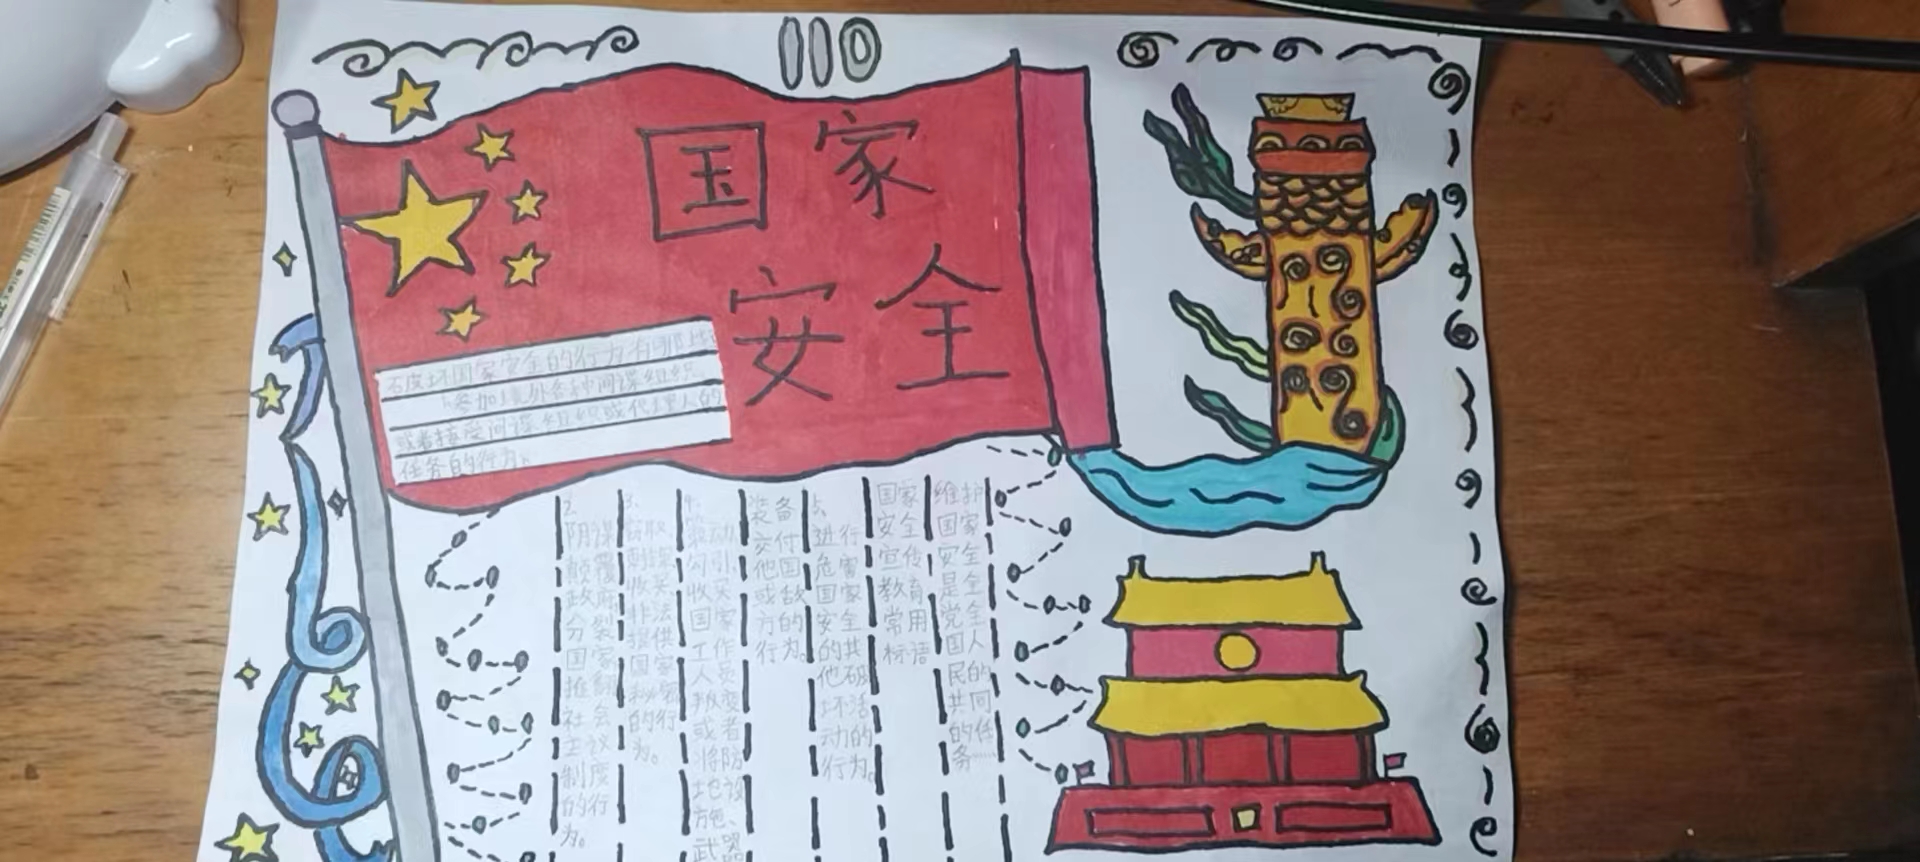 国家
安全
破坏国家安全的行为有哪些
1参加境外各种间谍组织
或者接受间谍组织或代理人的
任务的行为。
2.
阴谋
颠覆
政府
分裂
国家
推翻
社会
主义
制度
的行
为。
3.
窃取
刺探
收买
非法
提供
国家
秘密
的行
为。
4.
策动
勾引
收买
国家
工作
人员
叛变
或者
将防
地设
施、
武器
装备
交付
他国
或敌
方的
行为。
5.
进行
危害
国家
安全
的其
他破
坏活
动的
行为。
国家
安全
宣传
教育
常用
标语
维护
国家
安全
是全
党全
国人
民的
共同
的任
务……